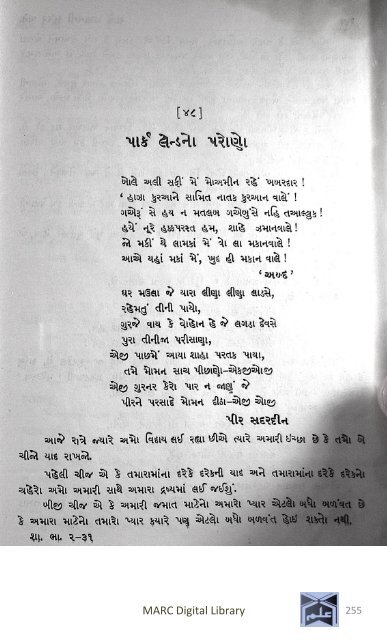 [ ૪૮ ]
પાર્ક લેન્ડનો પરોણો
બોલે અલી સફીં મેં મોઅમીન રહેં ખબરદાર !
' હાઝા કુરઆને સામિત નાતક કુરઆન વાલે !
ગએરૂં સે હય ન મતલબ ગએબુંસે નહિ તઆલ્લુક !
હયેં નૂરે હક્કપરસ્ત હમ, શાહે ઝમાનવાલે !
જો મકીં થે લામકાં મેં વો લા મકાનવાલે !
આએ યહાં મકાં મેં, ખુદ હી મકાન વાલે !
' અબ્દ '
ઘર મઉલા જે યારા લીણા લીણા લાડસે,
રહેમતું તીની પાયો,
ગુરજે વાય કે વોહોન હે જે લગડા દેવસે
પુરા તીનીજા પરીસાણા,
એજી પાછમેં આયા શાહા પરતક પાયા,
તમે મોમન સાચ પીછાણો–એજીએાજી
એજી ગુરનર કેરો પાર ન જાણું જે
પીરને પરસાદે મોમન દીઠા–એજી એાજી
પીર સદરદીન
આજે રાત્રે જ્યારે અમો વિદાય લઈ રહ્યા છીએ ત્યારે અમારી ઈચ્છા છે કે તમો બે
ચીજો યાદ રાખજો.
પહેલી ચીજ એ કે તમારામાંના દરેકે દરેકની યાદ અને તમારામાંના દરેકે દરેકનો
ચહેરો અમો અમારી સાથે અમારા દ્રષ્યમાં લઈ જઈશું.
બીજી ચીજ એ કે અમારી જમાત માટેનો અમારો પ્યાર એટલો બધો બળવંત છે
કે અમારા માટેનો તમારો પ્યાર કયારે પણ એટલો બધો બળવંત હોઈ શકતો નથી.
શા. ભા. ૨-૩૧
MARC Digital Library
255